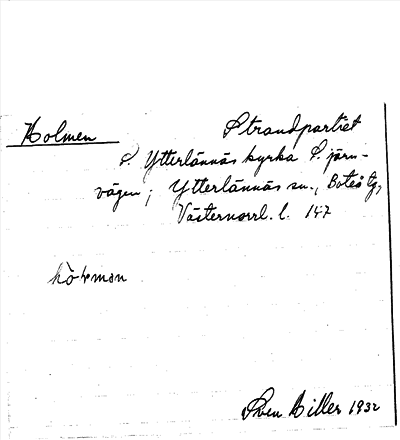 Holmen
Strandpartiet
S. Ytterlännäs kyrka S. järn-
vägen; Ytterlännäs sn., Boteå tg,
Västernorrl. l. 147
Sven Hiller 1932